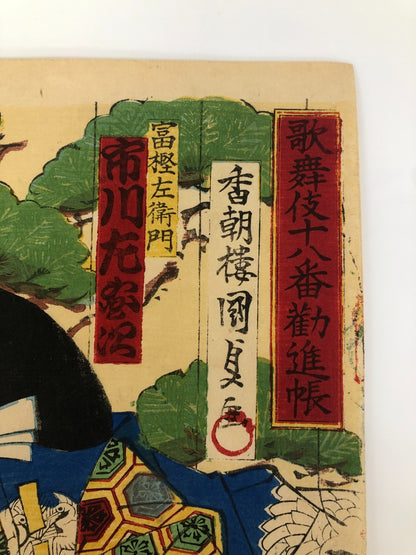 歌舞伎十八番勧進帳
香朝樓國貞画
富樫左衛門
市川左團次